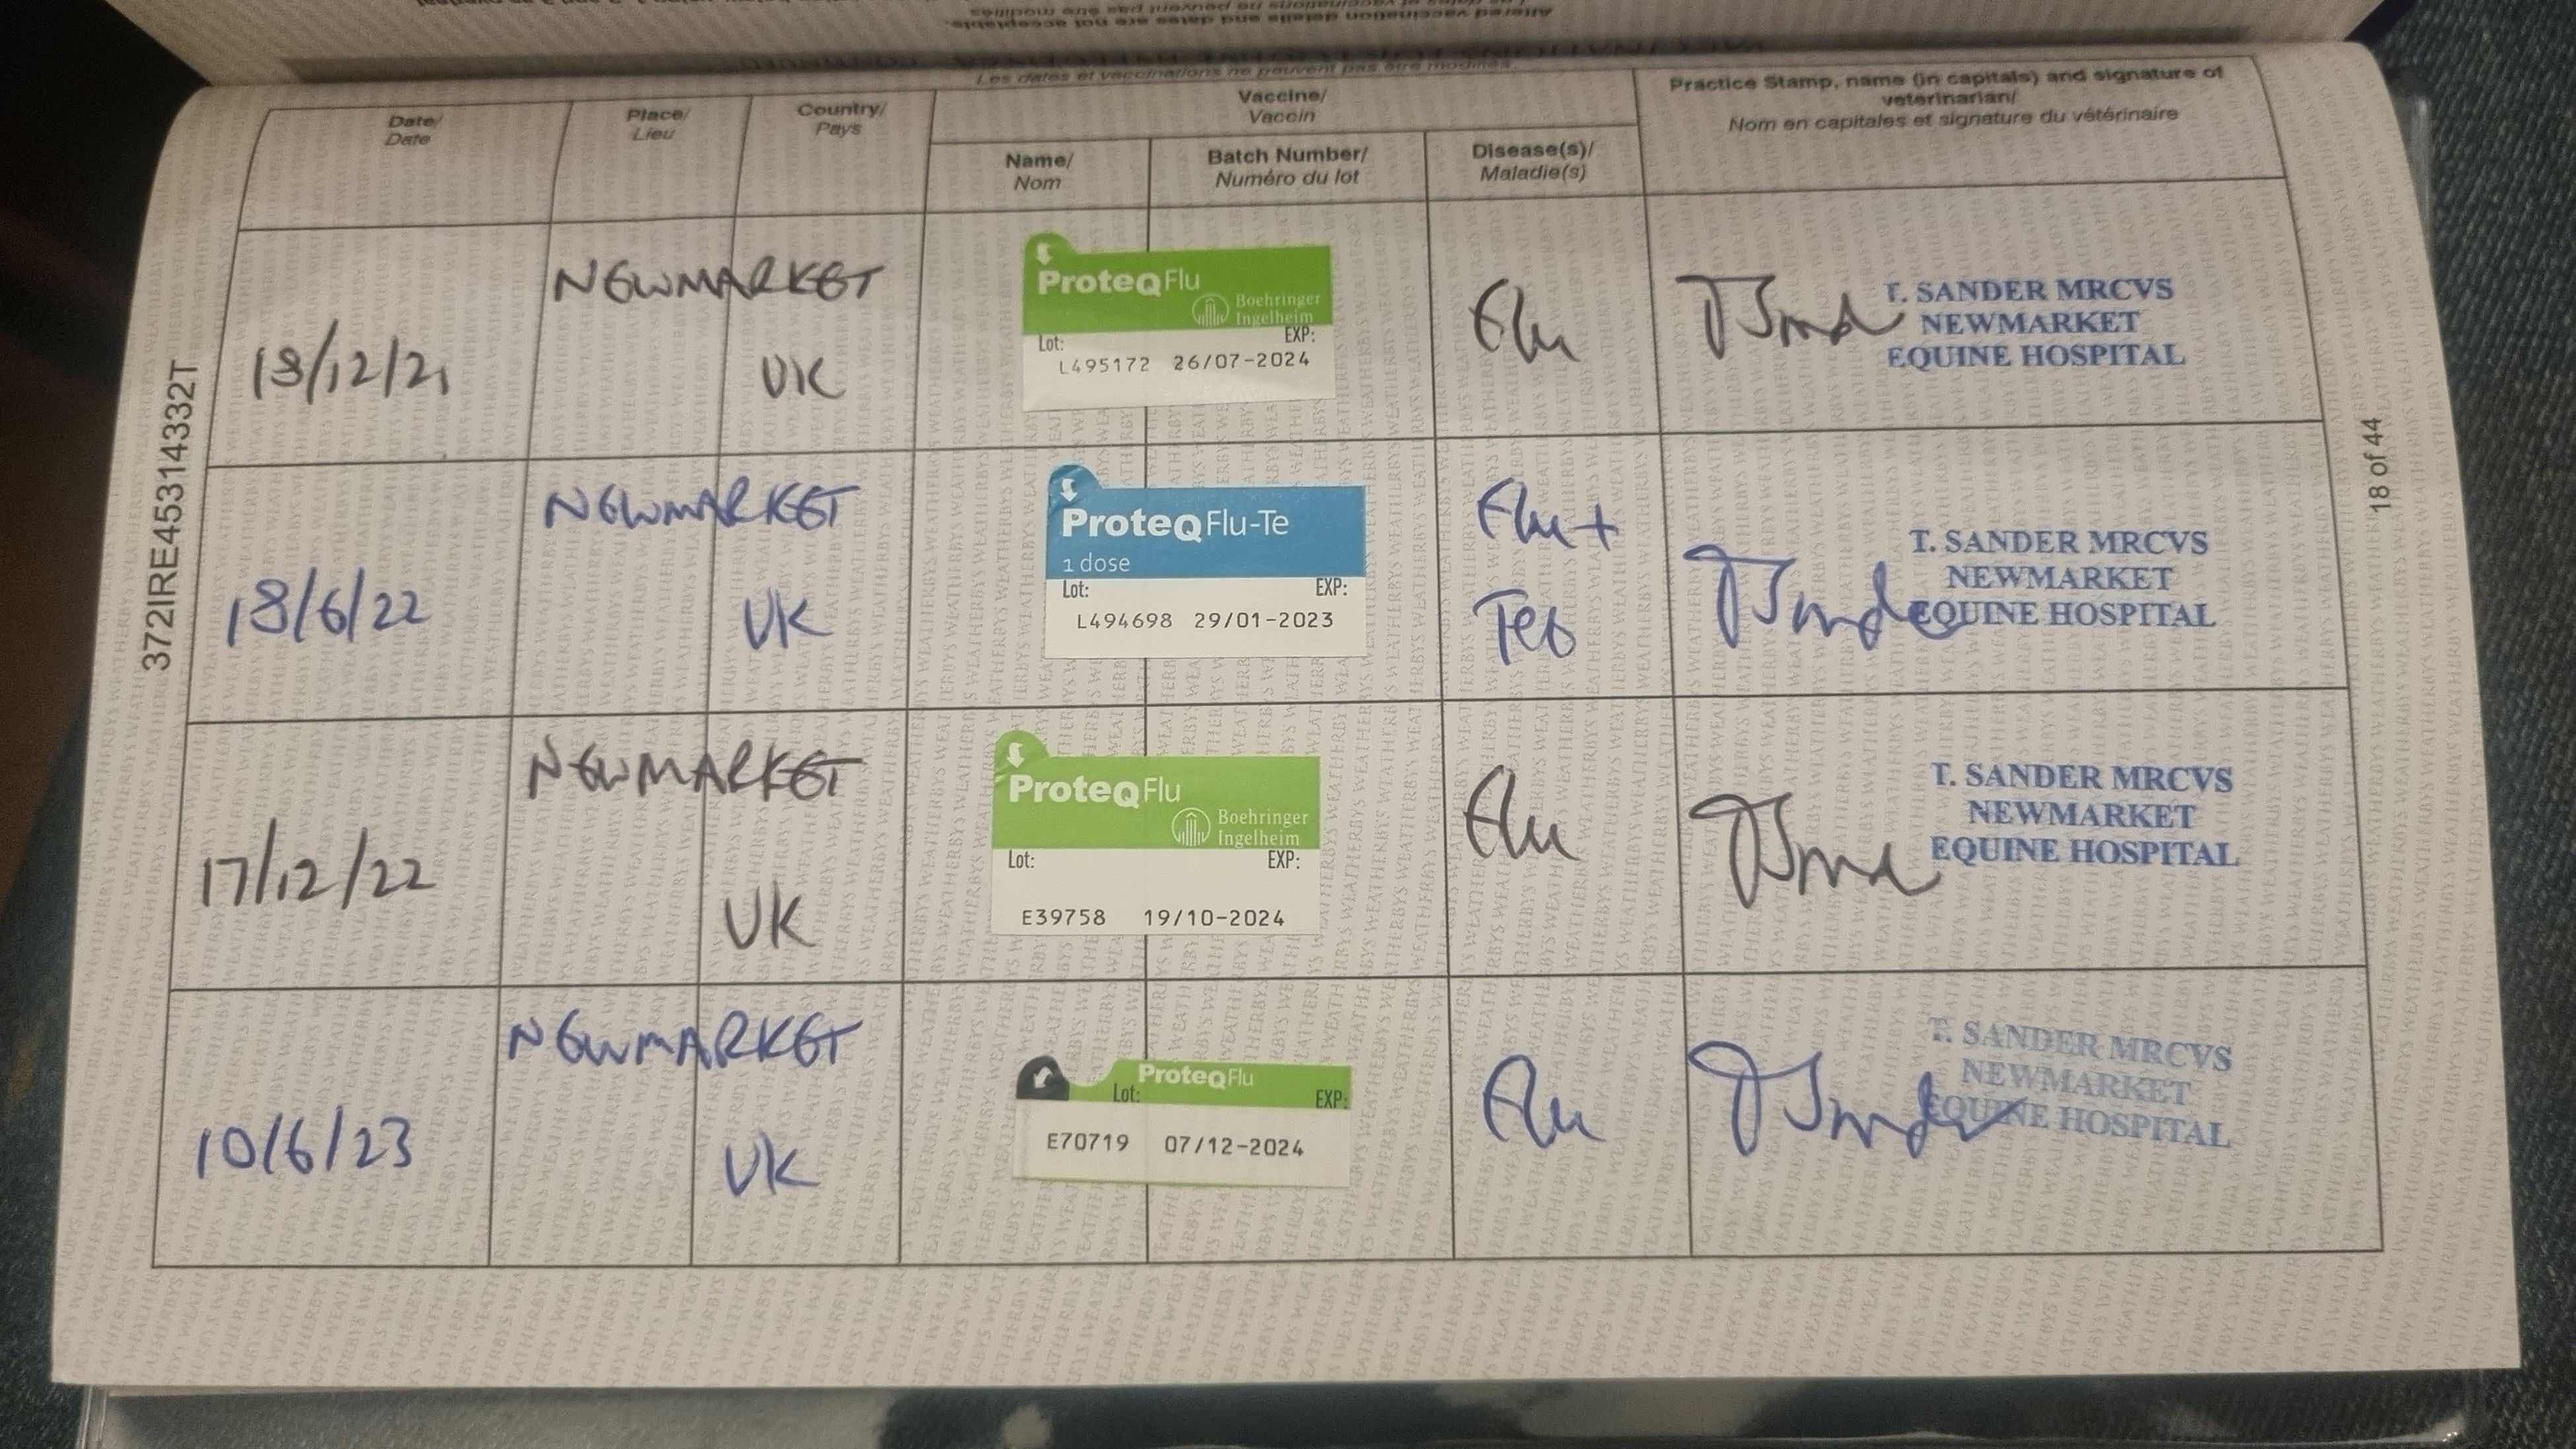 Altered vaccination details and dates are not acceptable.
Les dates et vaccinations ne peuvent pas être modifiés.
Date/
Date
Place/
Lieu
Country/
Pays
Vaccine/
Vaccin
Name/
Nom
Batch Number/
Numéro du lot
Disease(s)/
Maladie(s)
Practice Stamp, name (in capitals) and signature of
veterinarian/
Nom en capitales et signature du vétérinaire
18/12/21
NEWMARKET
UK
ProteqFlu
Boehringer
Ingelheim
Lot: EXP:
L495172 26/07-2024
Flu
T. SANDER MRCVS
NEWMARKET
EQUINE HOSPITAL
18/6/22
NEWMARKET
UK
ProteqFlu-Te
1 dose
Lot: EXP:
L494698 29/01-2023
Flu +
Tet
T. SANDER MRCVS
NEWMARKET
EQUINE HOSPITAL
17/12/22
NEWMARKET
UK
ProteqFlu
Boehringer
Ingelheim
Lot: EXP:
E39758 19/10-2024
Flu
T. SANDER MRCVS
NEWMARKET
EQUINE HOSPITAL
10/6/23
NEWMARKET
UK
ProteqFlu
Lot: EXP:
E70719 07/12-2024
Flu
T. SANDER MRCVS
NEWMARKET
EQUINE HOSPITAL
372IRE45314332T
18 of 44